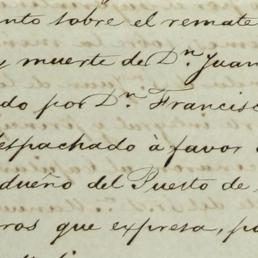 nto sobre el remate
y muerte de Dn. Juan
do por Dn. Francisc
espachado á favor
dueño del Puesto de
ros que expresa, po